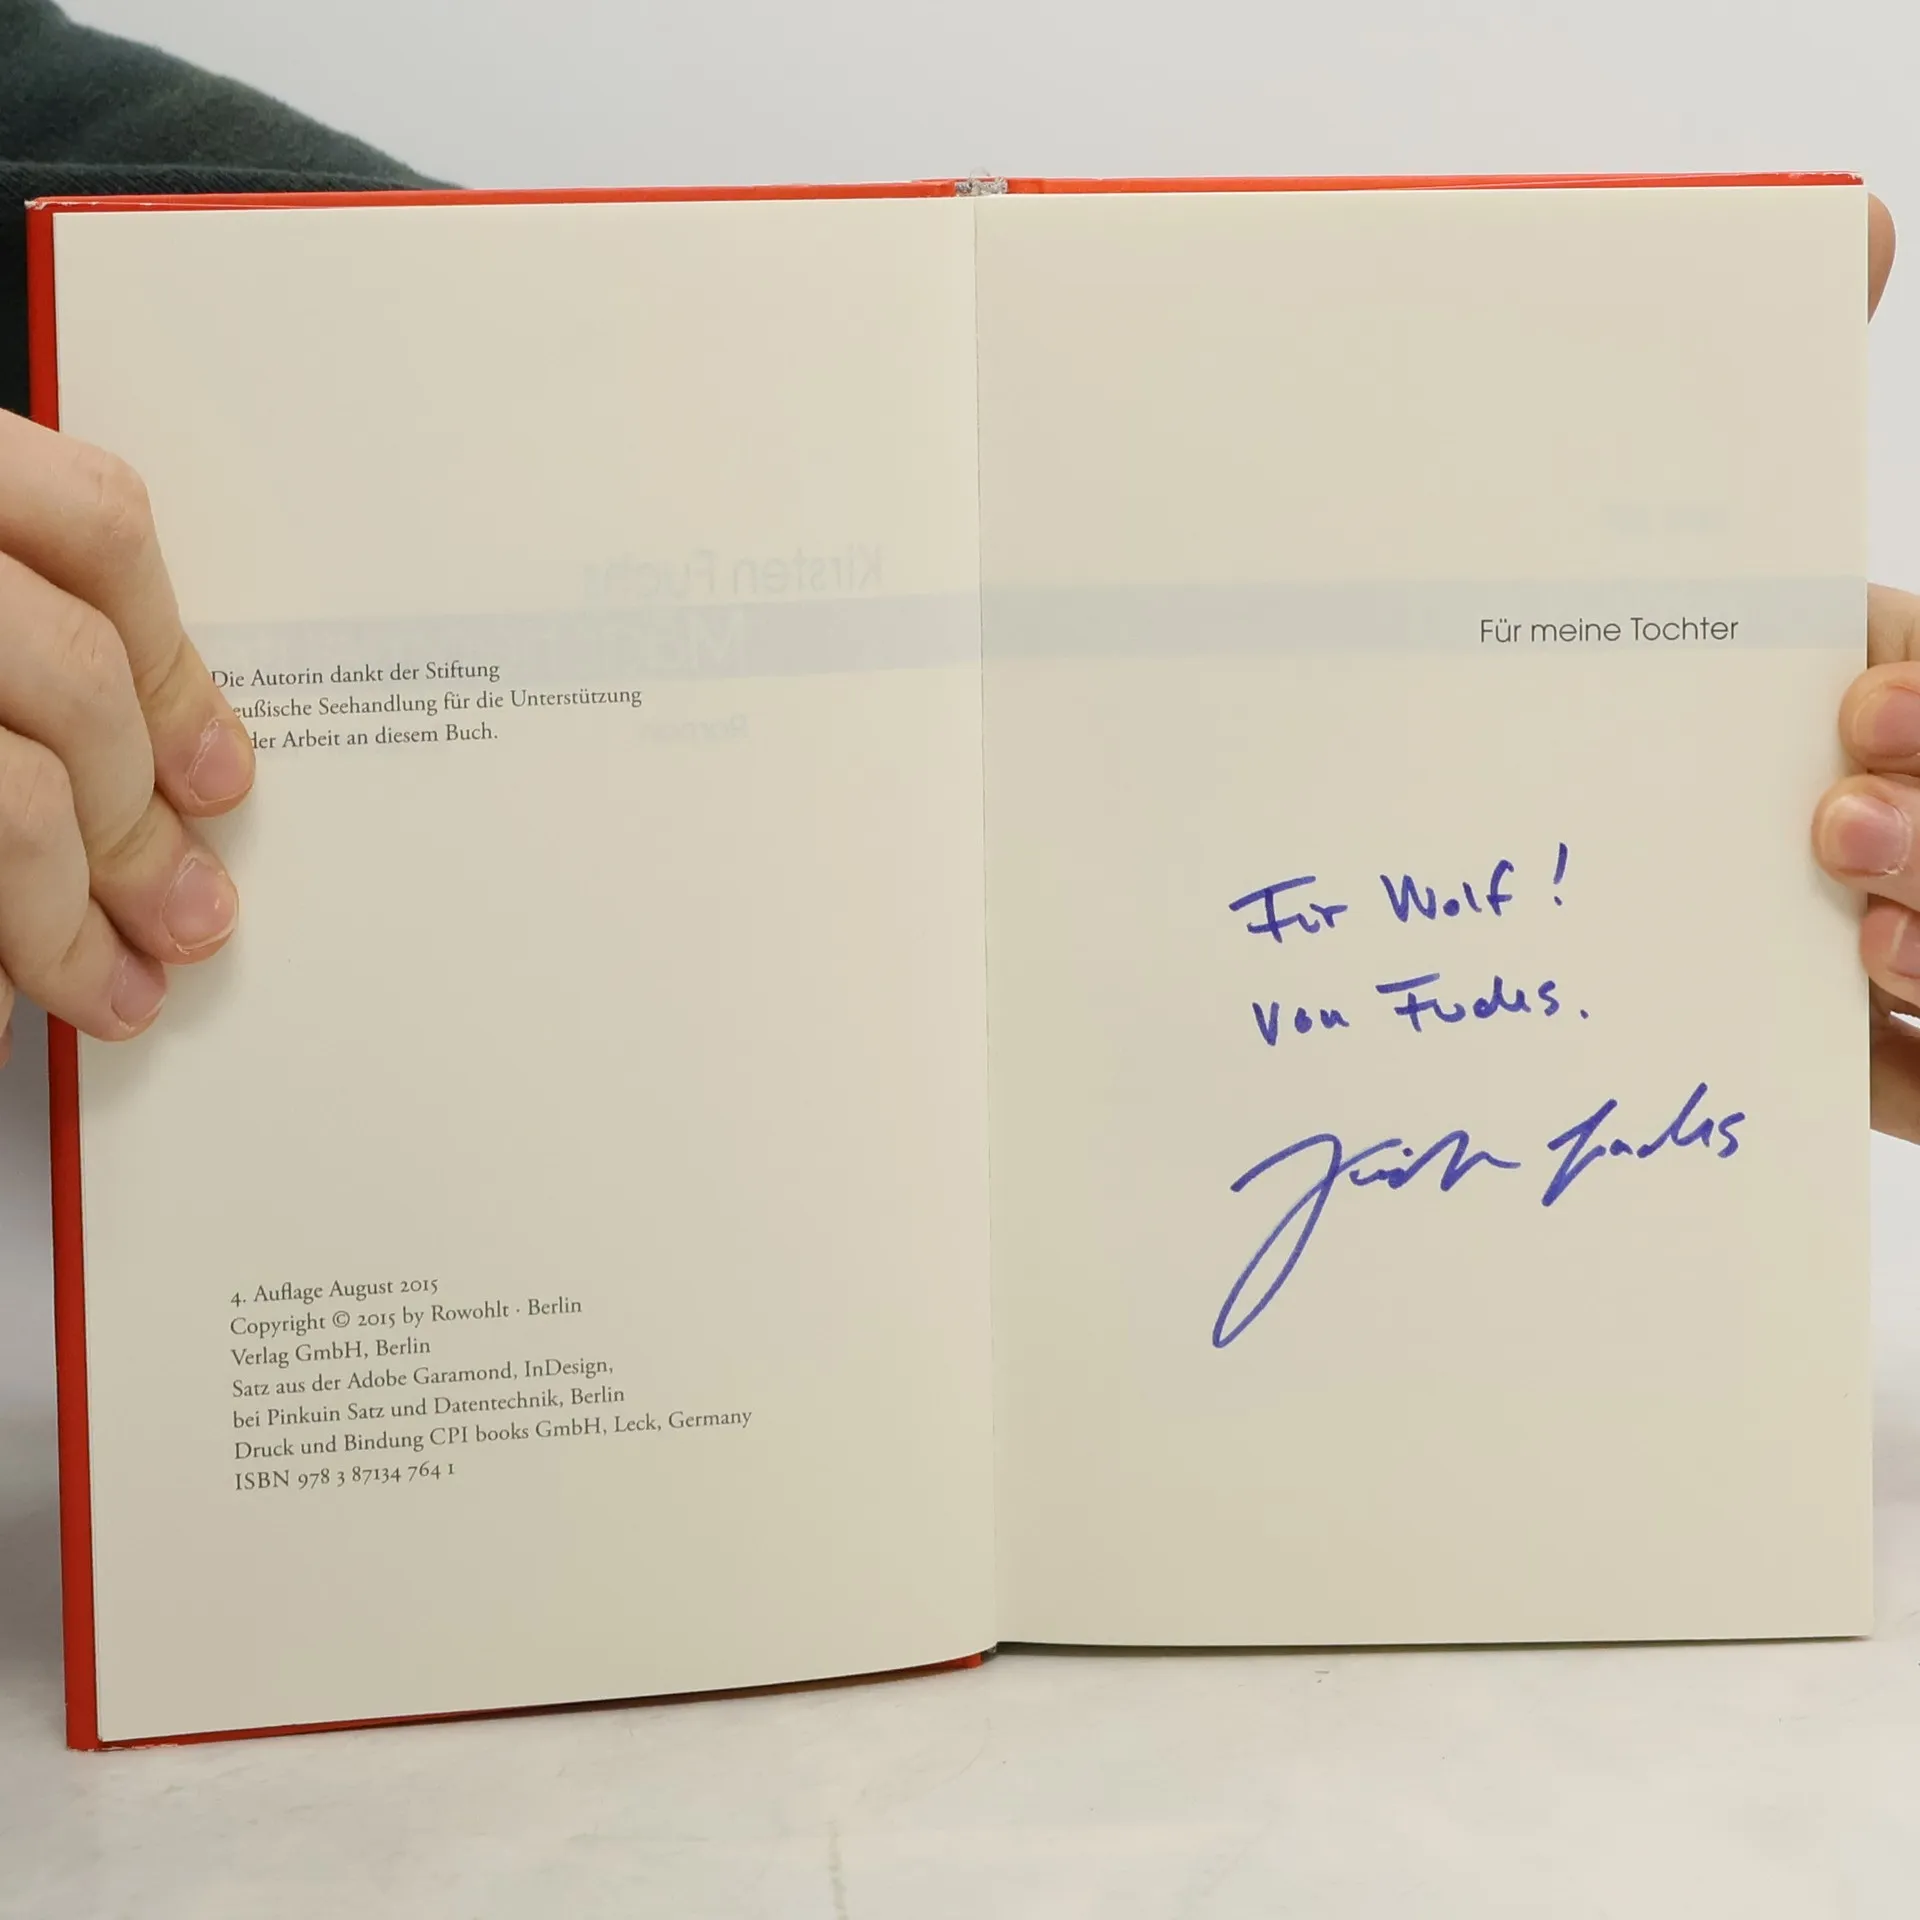 Die Autorin dankt der Stiftung
eußische Seehandlung für die Unterstützung
der Arbeit an diesem Buch.
4. Auflage August 2015
Copyright © 2015 by Rowohlt · Berlin
Verlag GmbH, Berlin
Satz aus der Adobe Garamond, InDesign,
bei Pinkuin Satz und Datentechnik, Berlin
Druck und Bindung CPI books GmbH, Leck, Germany
ISBN 978 3 87134 764 1
Kirsten Fuchs
Roman
Für meine Tochter
Für Wolf!
von Fuchs.
Kirsten Fuchs